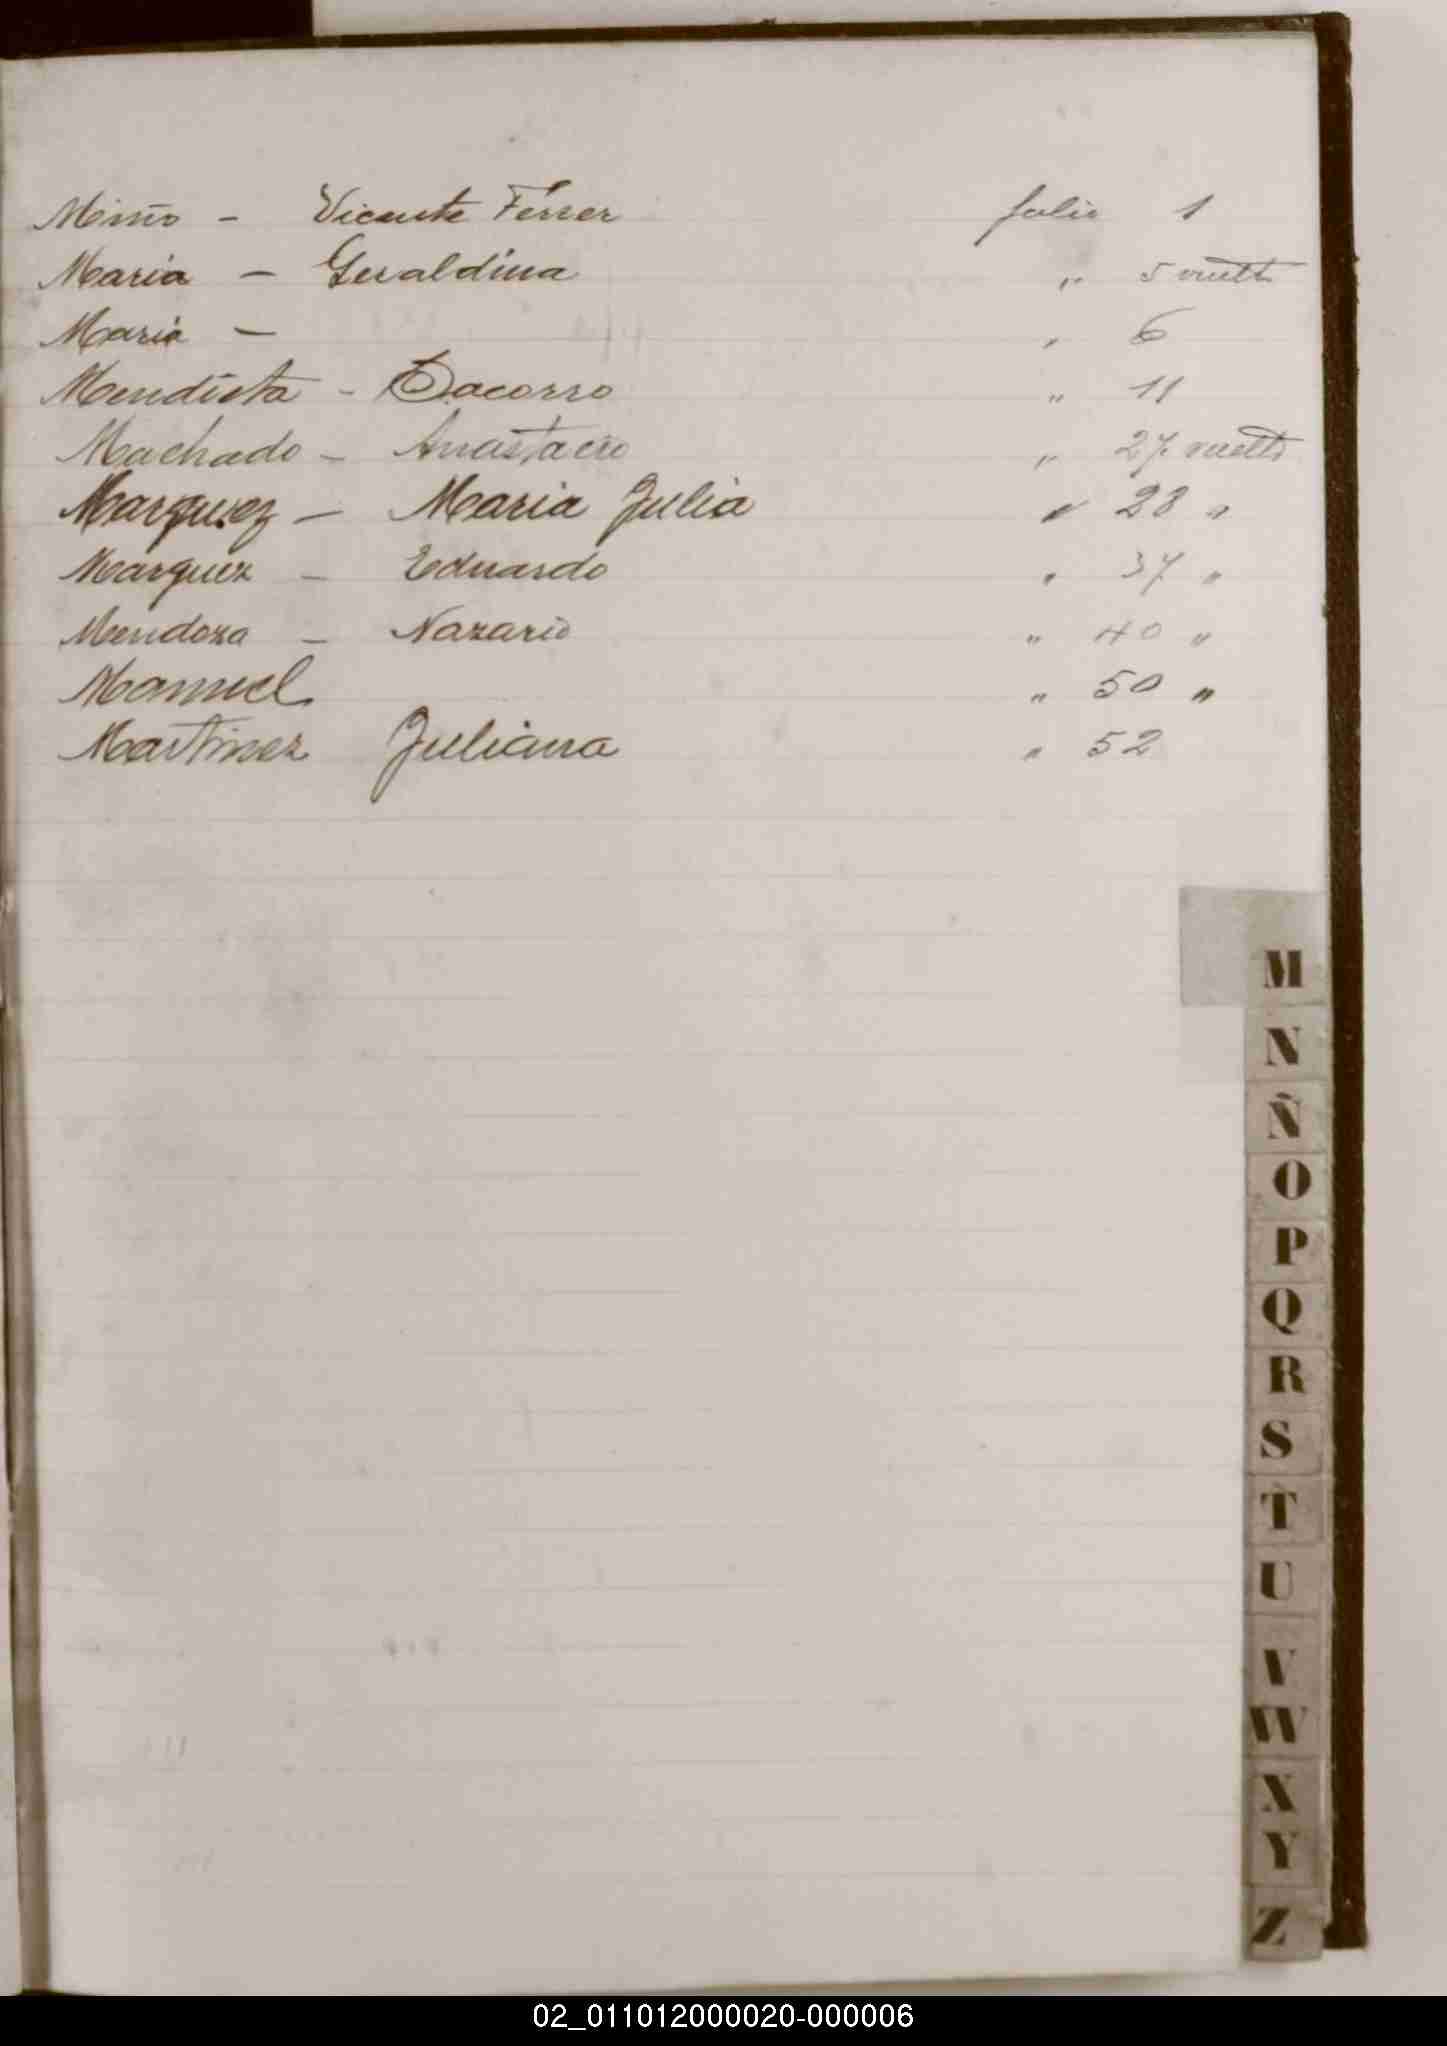 Miño - Vicente Ferrer folio 1
Maria - Geraldina " 5 vuelto
Maria - " 6
Mendieta - Socorro " 11
Machado - Anastacio " 27 vuelto
Marquez - Maria Julia " 28 "
Marquez - Eduardo " 37 "
Mendoza - Nazario " 40 "
Manuel " 50 "
Martinez Juliana " 52
M
N
Ñ
O
P
Q
R
S
T
U
V
W
X
Y
Z
02_011012000020-000006